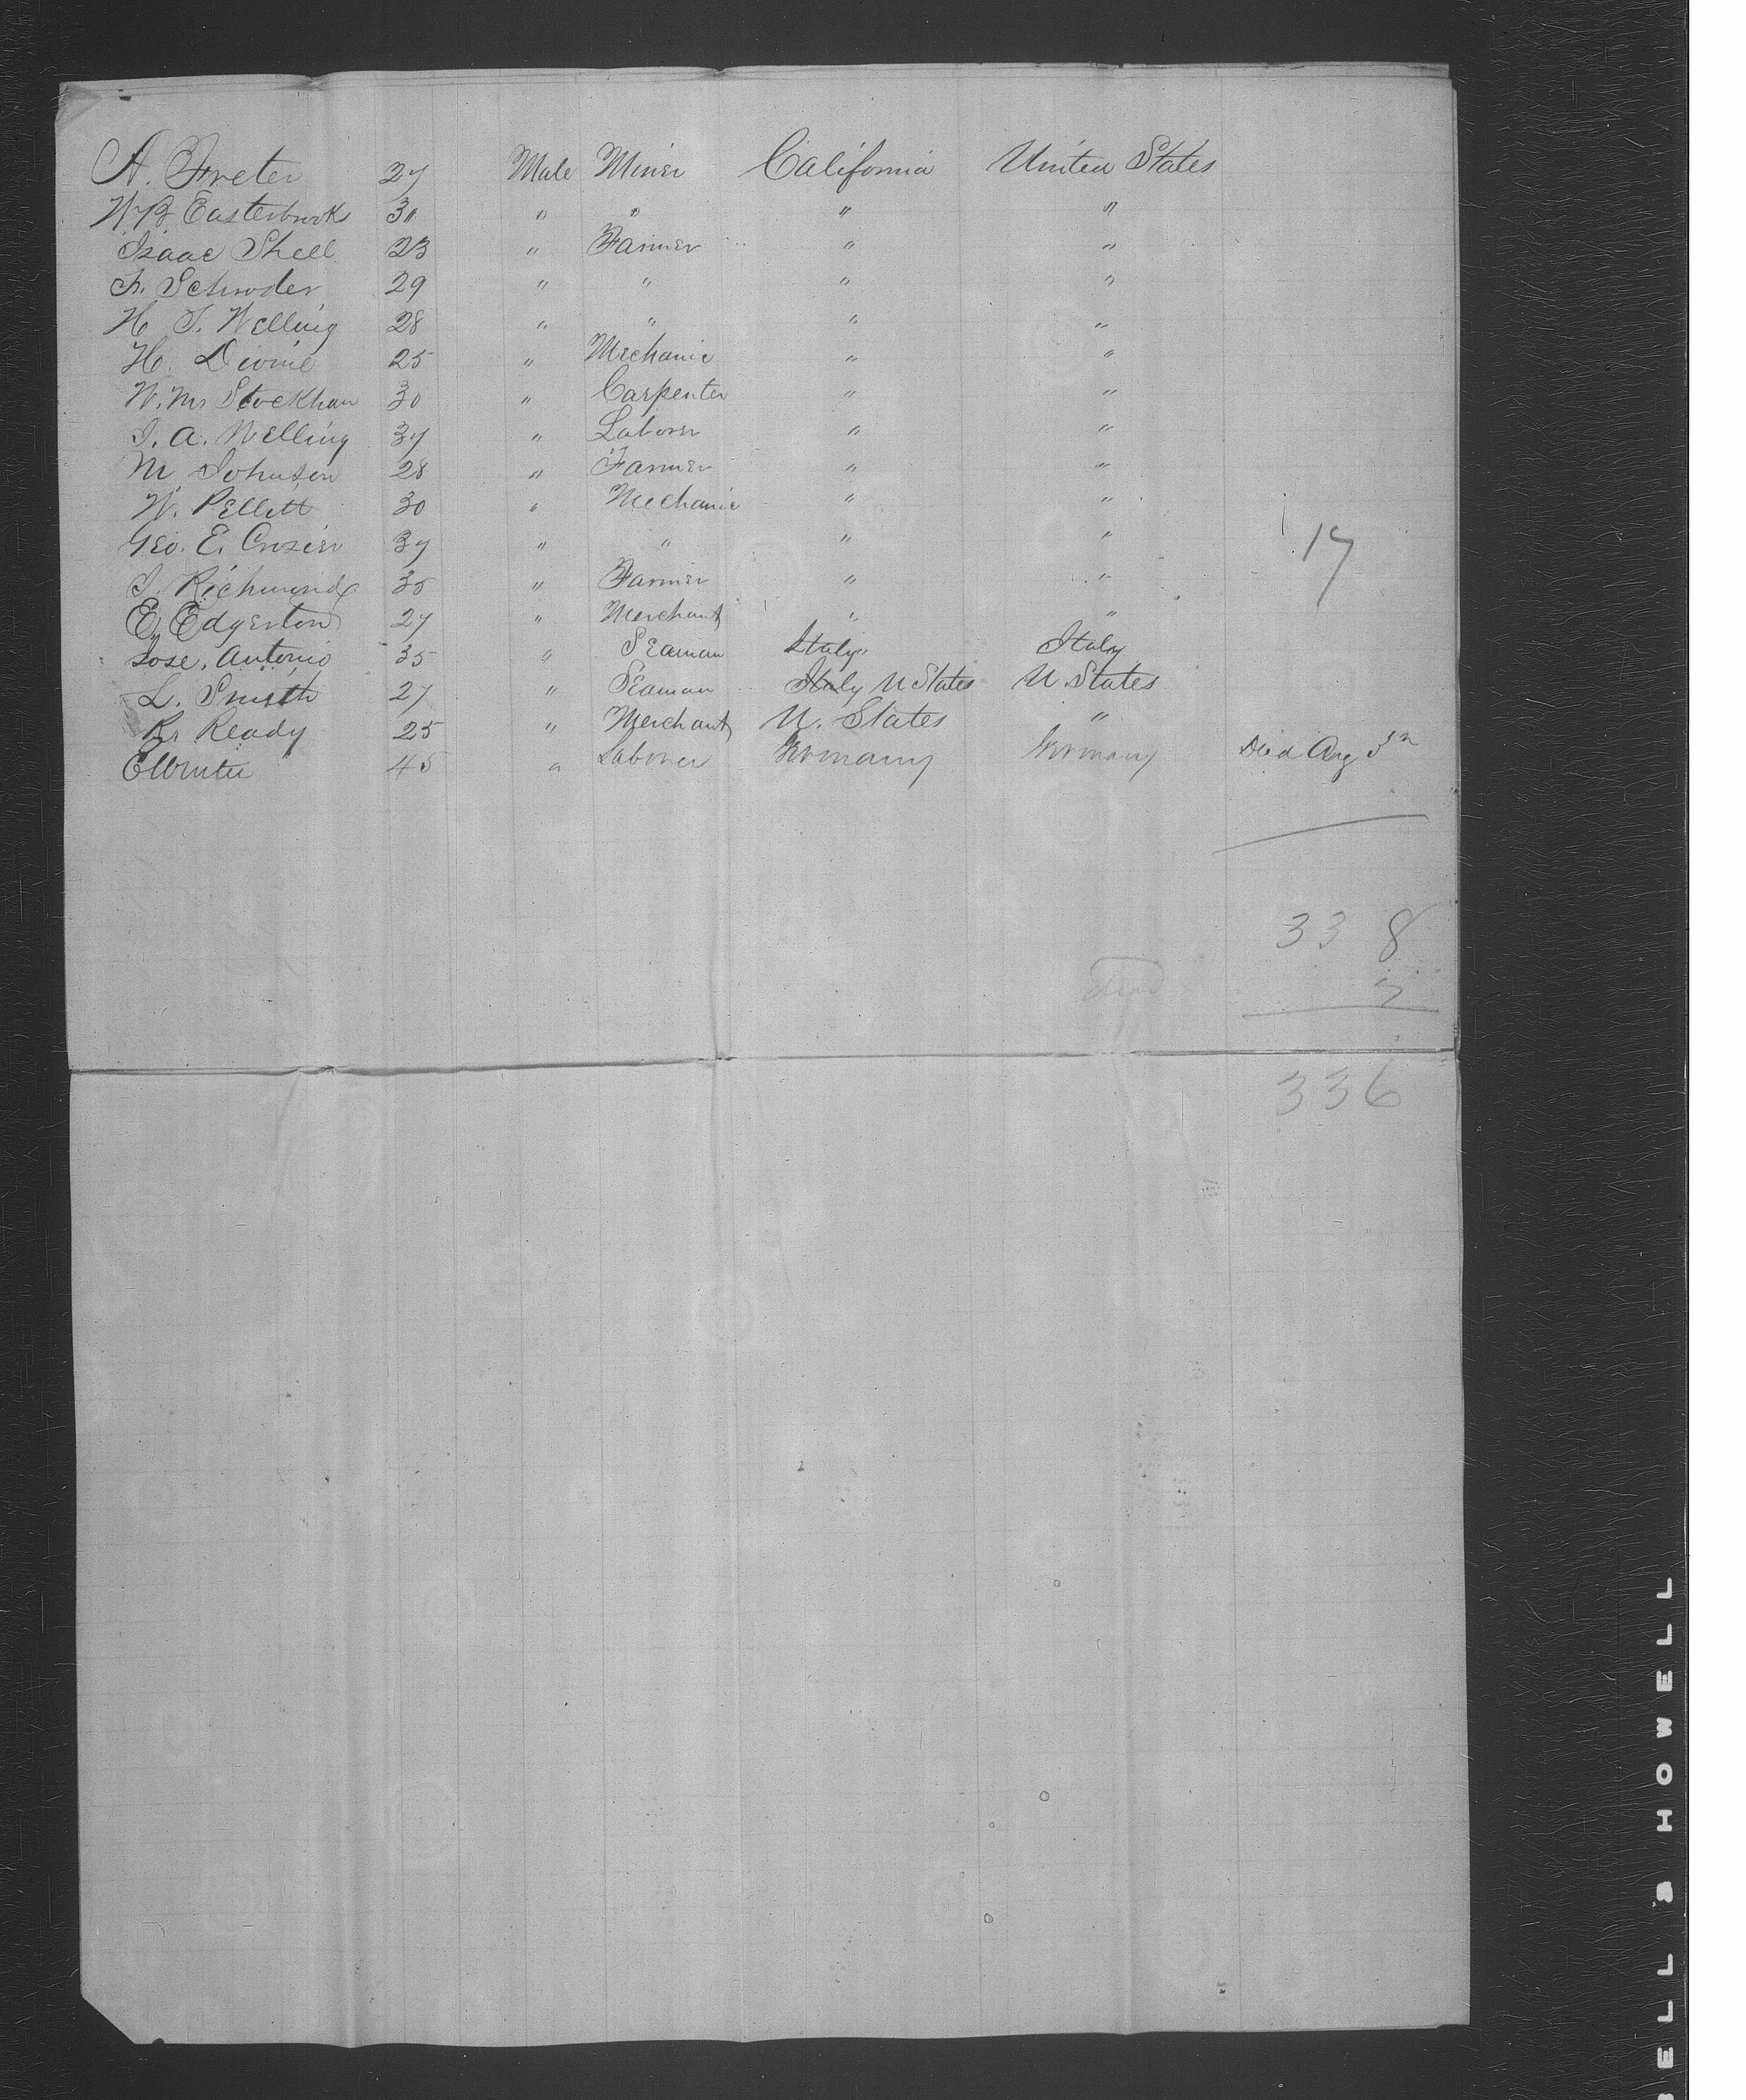 A. Freter 27 Male Miner California United States
W. B. Easterbrooks 30 " " " "
Isaac Shell 23 " Farmer " "
F. Schroder 29 " " " "
H. I. Welling 28 " " " "
H. Divine 25 " Mechanic " "
W. M. Stockham 30 " Carpenter " "
I. A. Welling 37 " Laborer " "
M Johnson 28 " Farmer " "
W. Pellett 30 " Mechanic " "
Geo. E. Crozier 37 " " " " 17
I. Richmond 35 " Farmer " "
E. Edgerton 27 " Merchant " "
Jose. Antonio 35 " Seaman Italy Italy
L. Smith 27 " Seaman Italy U States U. States
R. Ready 25 " Merchant U. States "
E Winter 45 " Laborer Germany Germany Died Aug 3
338
2
336
BELL & HOWELL